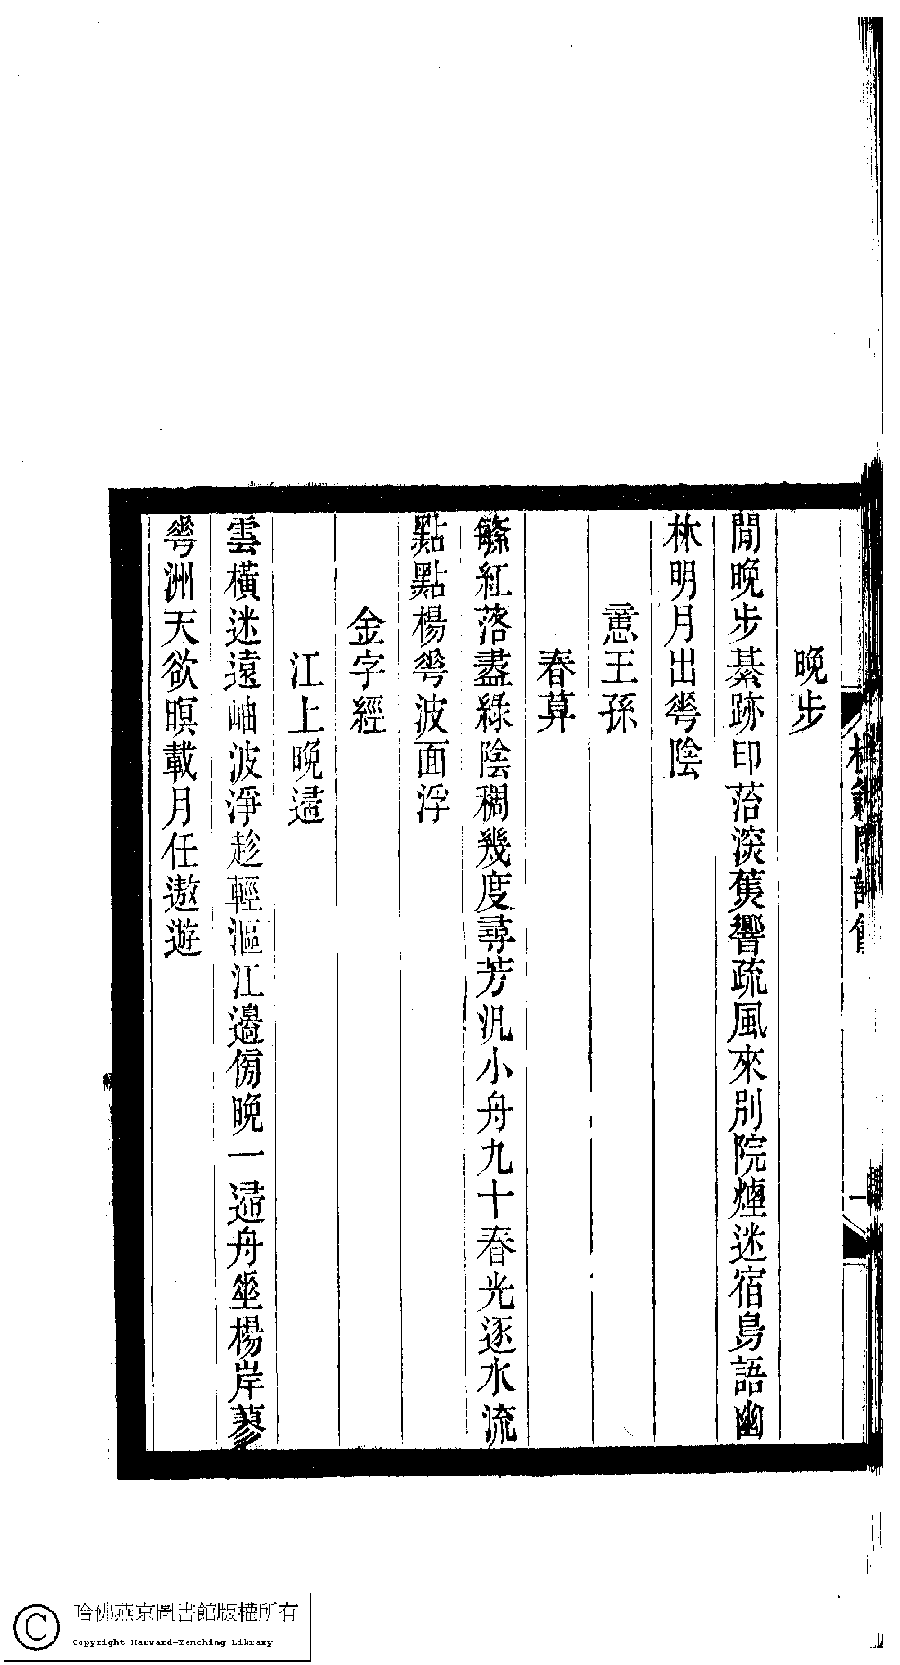 晚步
閒晚步綦跡印苔深蕉響疏風來別院煙迷宿鳥語幽
林明月出芲陰
憶王孫
春暮
繁紅落盡綠陰稠幾度尋芳汎小舟九十春光逐水流
點點楊芲波面浮
金字經
江上晚歸
雲橫迷遠岫波淨趁輕漚江邊傍晚一歸舟坐楊岸蓼
芲洲天欲暝載月任遨遊
一
哈佛燕京圖書館版權所有
Copyright Harvard-Yenching Library